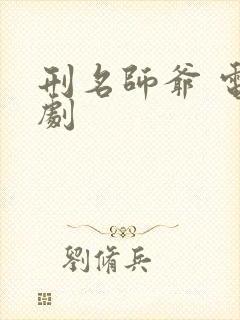 刑名師爺 電
劇
劉脩兵